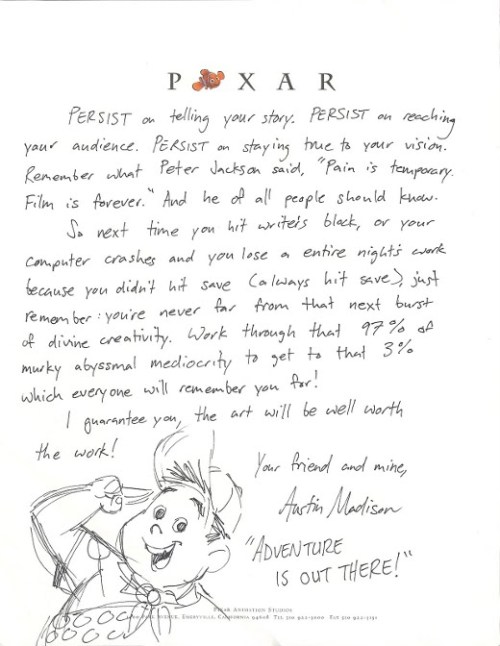 PIXAR
PERSIST on telling your story. PERSIST on reaching
your audience. PERSIST on staying true to your vision.
Remember what Peter Jackson said, "Pain is temporary.
Film is forever." And he of all people should know.
So next time you hit writer's block, or your
computer crashes and you lose a entire night's work
because you didn't hit save (always hit save), just
remember: you're never far from that next burst
of divine creativity. Work through that 97% of
murky abyssmal mediocrity to get to that 3%
which everyone will remember you for!
I guarantee you, the art will be well worth
the work!
Your friend and mine,
Austin Madison
"ADVENTURE
IS OUT THERE!"
PIXAR ANIMATION STUDIOS
AVENUE, EMERYVILLE, CALIFORNIA 94608 TEL 510 922-3000 FAX 510 922-3151